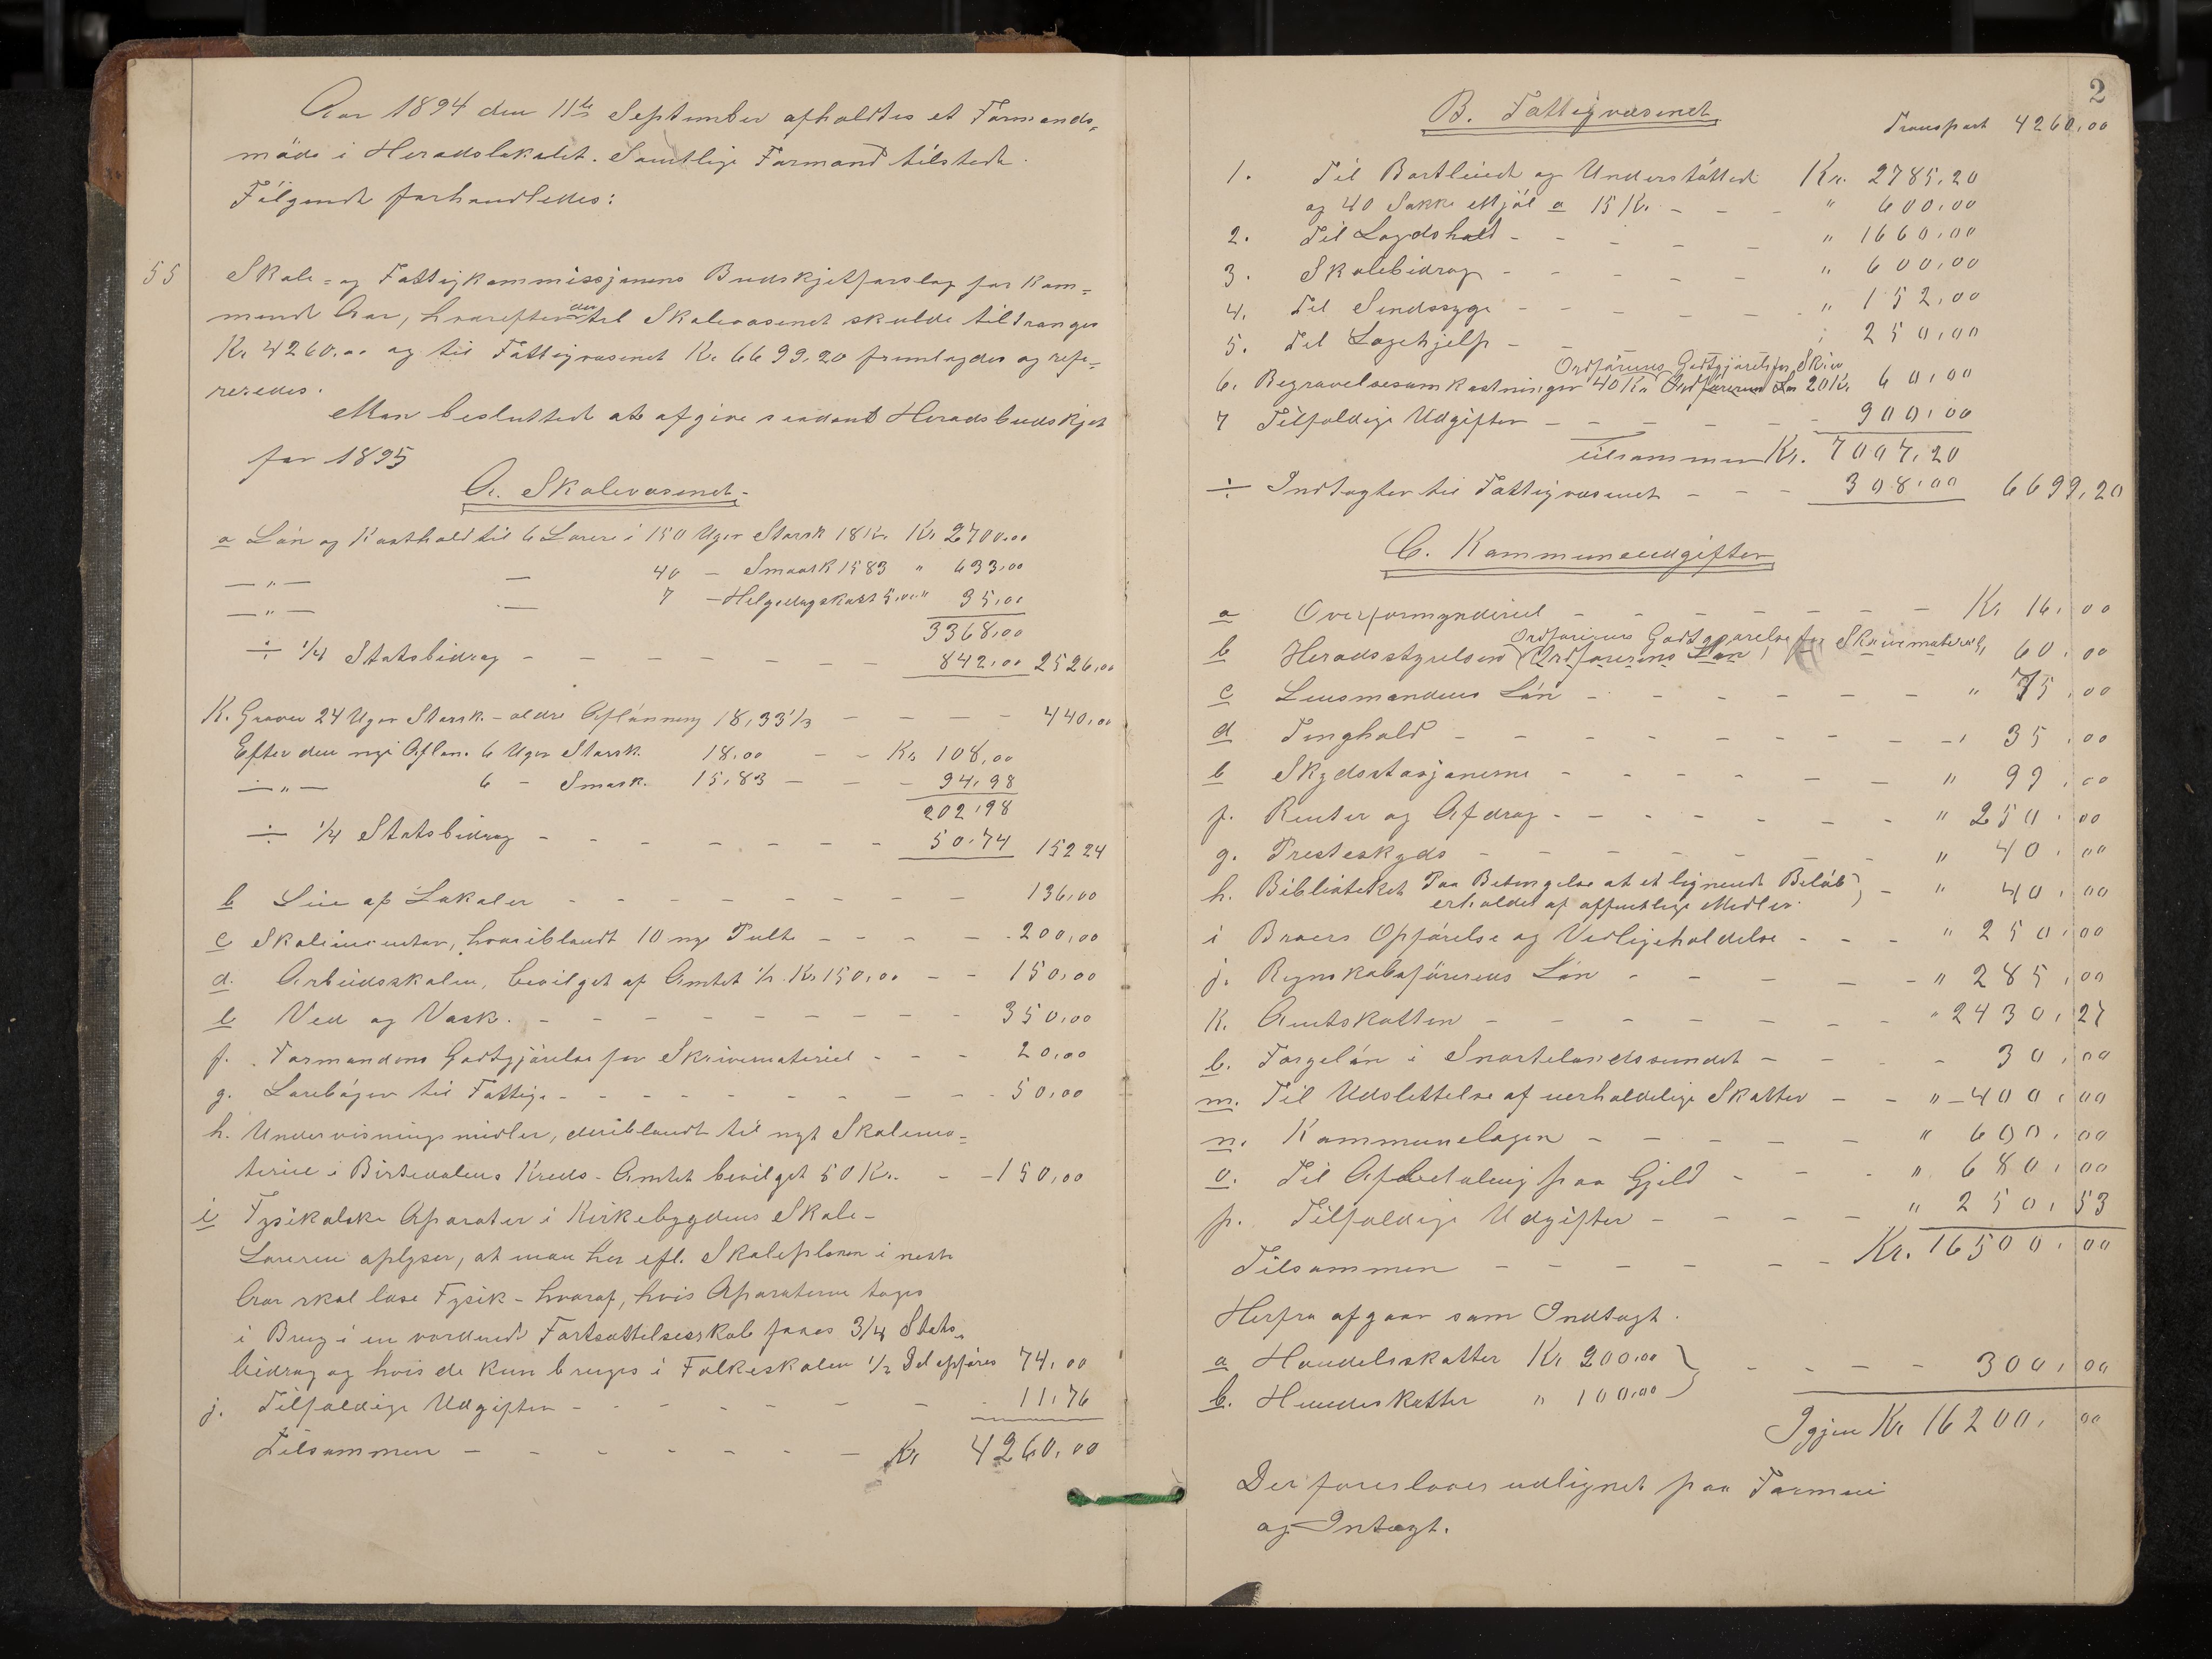 Aar 1894 den 11te September afholdtes et Formands-
møde i Heradslokalet. Samtlige Formænd tilstede.
Følgende forhandledes:
55 Skole- og Fattigkommissjonens Budskjetforslag for kom-
mende Aar, hvorefter der til Skolevæsenet skulde tiltrænges
Kr 4260.00 og til Fattigvæsenet Kr. 6699,20 fremlagdes og refe-
reredes.
Man besluttede at afgive saadant Heradsbudskjet
for 1895
A. Skolevæsenet.
a Løn og Kosthold til 6 Lærere i 150 Uger Storsk 18 Kr. Kr. 2700.00
— " — — 40 — Smaask 15 83 " 633,00
— " — — 7 — Helgedagskost 5,00 " 35,00
3368,00
÷ 1/4 Statsbidrag - - - 842,00 2526,00
K. Graver 24 Uger Storsk. - ældre Aflønning 18,33 1/3 - - - 440,00
Efter den nye Afløn. 6 Uger Storsk. 18.00 - - Kr. 108,00
— " — 6 - Smask. 15,83 - - - 94,98
202,98
÷ 1/4 Statsbidrag - - - 50.74 152 24
b Leie af Lokaler - - - 136,00
c Skoleinventar, hvoriblandt 10 nye Pulte - - - 200,00
d. Arbeidsskolen, bevilget af Amtet 1/2 Kr. 150,00 - - 150,00
e Ved og Vask. - - - 350,00
f. Formandens Godtgjørelse for Skrivemateriel - - - 20,00
g. Lærebøger til Fattige - - - 50,00
h. Undervisningsmidler, deriblandt til nyt Skolema-
teriel i Birtedalens Kreds - Amtet bevilget 50 Kr. - - 150,00
i Fysikalske Aparater i Kirkebygdens Skole -
Læreren oplyser, at man her efl. Skoleplanen i neste
Aar skal læse Fysik - hvoraf, hvis Aparaterne tages
i Brug i en vordende Fortsættelsesskole faaes 3/4 Stats-
bidrag og hvis de kun bruges i Folkeskolen 1/2 Del opføres 74,00
j. Tilfældige Udgifter - - - 11,76
Tilsammen - - - Kr 4260,00
2
B. Fattigvæsenet.
Transport 4260,00
1. Til Bortleiede og Understøttede Kr. 2785,20
og 40 Sække Mjøl a 15 Kr. - - - " 600,00
2. Til Lægdshold - - - " 1660,00
3. Skolebidrag - - - " 600,00
4. Til Sindssyge - - - " 152,00
5. Til Lægehjelp - - - " 250,00
Ordførerens Godtgjørelse for Skriv
6. Begravelsesomkostninger 40 Kr. Ordførerens Løn 20 Kr. 60,00
7 Tilfældige Udgifter - - - 900,00
Tilsammen Kr. 7007,20
÷ Indtægter til Fattigvæsenet - - - 308,00 6699,20
C. Kommuneudgifter
a Overformynderiet - - - Kr 16,00
Ordførerens Godtgjørelse for Skrivemateriel,
b Heradsstyrelsen (Ordførerens Løn) 60,00
c Lensmandens Løn - - - " 75,00
d Tinghold - - - " 35,00
e Skydsstasjonerne - - - " 99,00
f. Renter og Afdrag - - - " 250,00
g. Presteskyds - - - " 40,00
h. Biblioteket Paa Betingelse at et lignende Beløb
erholdes af offentlige Midler. - " 40,00
i Broers Opførelse og Vedligeholdelse - - - " 250,00
j. Regnskabsførerens Løn - - - " 285,00
k. Amtskatten - - - " 2430,27
l. Færgeløn i Snartelandssundet - - - 30,00
m. Til Udslettelse af uerholdelige Skatter - - " 400,00
n. Kommunelægen - - - " 600,00
o. Til Afbetaling paa Gjeld - - - " 680,00
p. Tilfældige Udgifter - - - " 250,53
Tilsammen - - - Kr. 16500,00
Herfra afgaar som Indtægt.
a Handelsskatter Kr 200,00 } - - - 300,00
b. Hundeskatter " 100,00
Igjen Kr 16200,00
Der foreslaaes udlignet paa Formue
og Intægt.